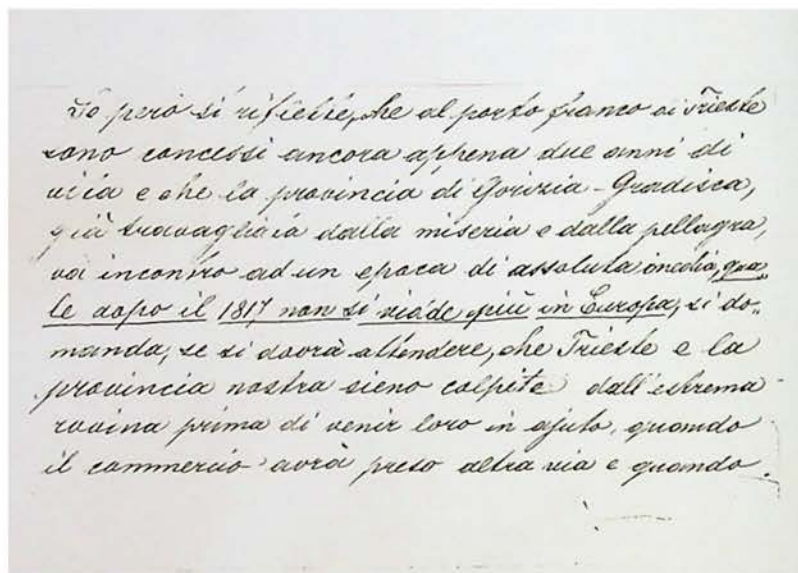 Se però si riflette, che al porto franco di Trieste
sono concessi ancora appena due anni di
vita e che la provincia di Gorizia-Gradisca,
già travagliata dalla miseria e dalla pellagra,
va incontro ad un epoca di assoluta inedia, qua„
le dopo il 1817 non si vidde più in Europa, si do„
manda, se si dovrà attendere, che Trieste e la
provincia nostra sieno colpite dall'estrema
rovina prima di venir loro in ajuto, quando
il commercio avrà preso altra via e quando